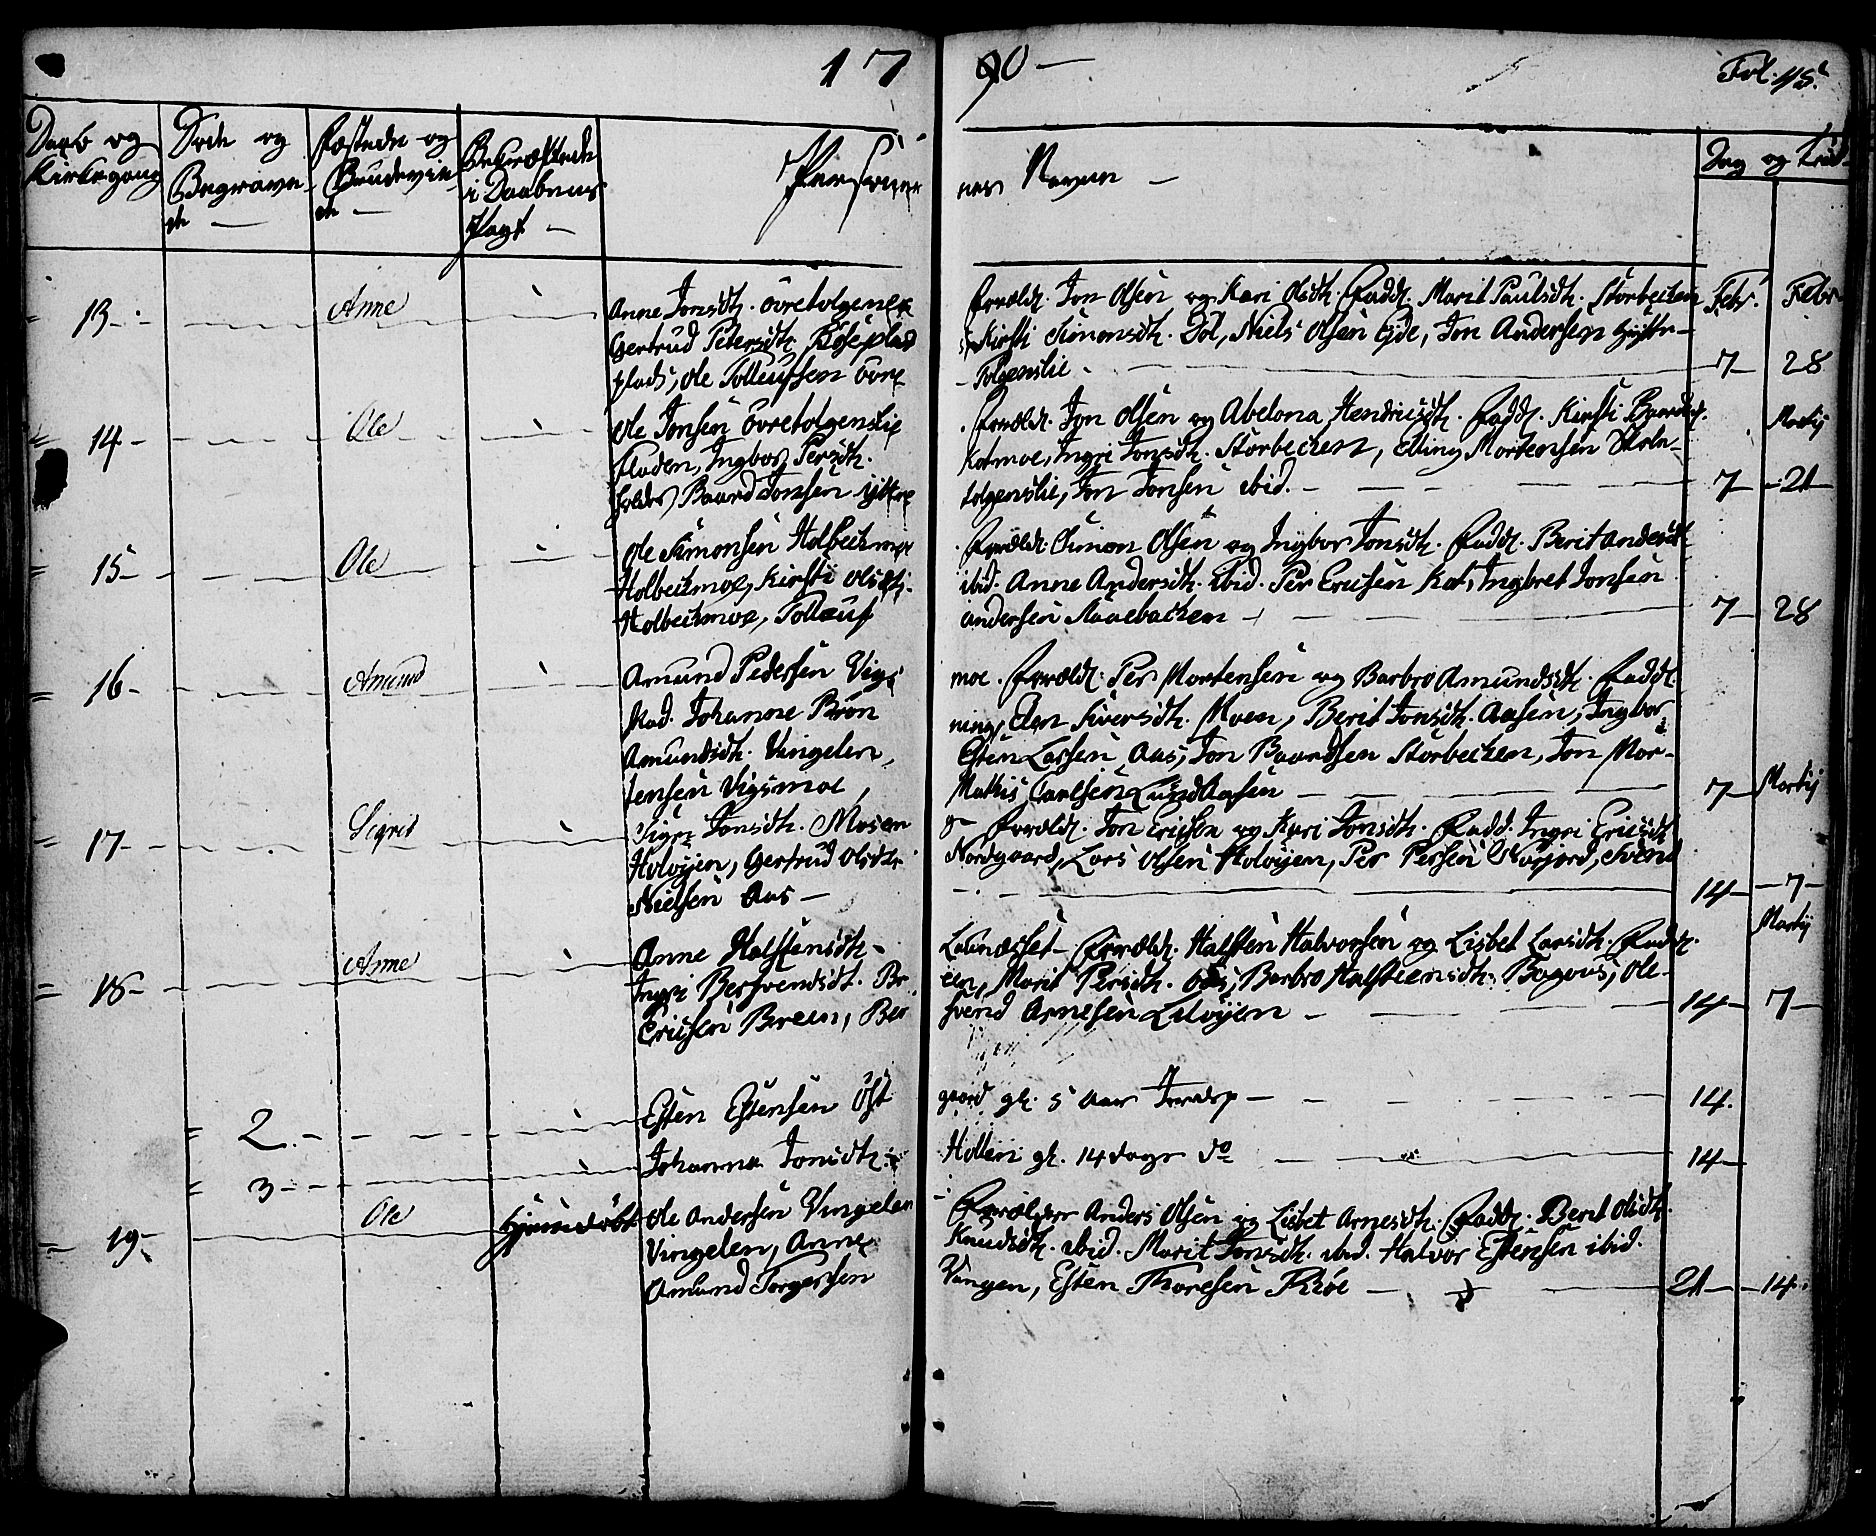 17 90 —
Fol. 45.
Daab og Kirkegang
Døde og Begravne
Fæstede og Brudeviede —
Bekræftede i Daabens Pagt —
Personernes Navne —
Dag og Tid
13 — Anne — Anne Jonsdtr. øvretolgenes Foræld. Jon Olsen og Kari Olsdtr. Fadd. Marit Paulsdtr. Storbecken Febr. Febr.
Gertrud Petersdtr. Kirsti Simonsdtr. Niels Olsen Eide, Jon Andersen hytte-
plads, Ole Tollevsen øvre Tolgenslie — 7 — 28
14 — Ole — Ole Jonsen øvretolgenslie Foræld. Jon Olsen og Abelona Hendricsdtr. Fadd. Kirsti Martij
Floden, Ingbor Persdtr. Kotmoe, Ingri Jonsdtr. Storbecken, Elling Mortensen
Baard Jonsen yttre tolgenslie, Jon Jonsen ibid. — 7 — 21 —
15 — Ole — Ole Simonsen Holbeckmoe Foræld. Simon Olsen og Ingbor Jonsdtr. Fadd. Berit Andersdtr.
Holbeckmoe, Kirsti Olsdtr. ibid. Anne Andersdtr. ibid. Per Ericsen Kot, Ingbret Jonsen
Holbeckmoe, Tolleuf andersen — 7 — 28
16 — Amund — Amund Pedersen Vigsmoe. Foræld. Per Mortensen og Barbro Amundsdtr. Fadd.
Mad. Johanne Brønning, Elen Siversdtr. Moen, Berit Jonsdtr. Aasen, Ingbor
Amundsdtr. Vingelen, Esten Larsen Aas, Jon Baardsen Storbecken, Jon Mor-
tensen Vigsmoe, Mathis Carlsen Lund Aasen — 7 — Martij
17 — Sigrid — Sigri Jonsdtr. Mosen Foræld. Jon Ericsen og Kari Jonsdtr. Fadd. Ingri Ericsdtr.
Holøyen, Gertrud Olsdtr. Nordgaard, Lars Olsen Holøyen, Per Persen Svend
Nielsen Aas — 14 — 7 —
18 — Anne — Anne Halstensdtr. Foræld. Halsten Halvorsen og Lisbet Larsdtr. Fadd. Martij
Ingri Bersvendsdt. Marit Persdtr. Aas, Barbro Halsteensdtr. Ole
Ericsen Breen, Bersvend Arnesen — 14 — 7 —
2. — Esten Estensen Østgaard gl. 5 Aar — 14.
3 — Johanna Jonsdtr. Hollen gl. 14 dage do — 14 —
19. — Ole — Hjemedøbt Ole Andersen Vingelen Forældre Anders Olsen og Lisbet Arnesdtr. Fadd. Berit Olsdtr.
Vingelen, Anne Knudsdtr. ibid. Marit Jonsdtr. ibid. Halvor Estensen ibid.
Amund Torgersen Vangen, Esten Thoresen Røe — 21 — 14.